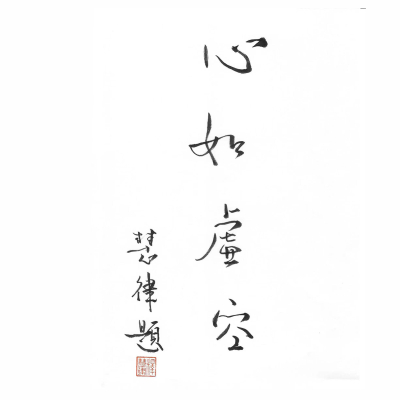 心如虚空
慧律題